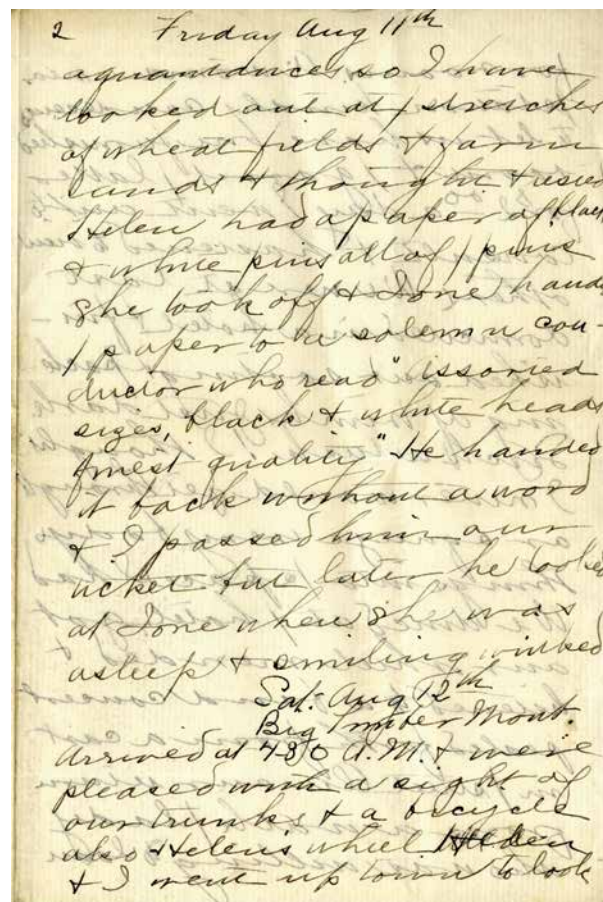 2 Friday Aug 11th
aquantances so I have
looked out at stretches
of wheat fields & farm
lands & thought & rested
Helen had a paper of black
& white pins all of pins
She took off & Ione hands
paper to a solemn con-
ductor who read "Assorted
sizes, black & white heads
finest quality" He handed
it back without a word
& I passed him our
ticket but later he looked
at Ione when she was
asleep & smiling winked
Sat. Aug 12th
Big Timber Mont.
Arrived at 430 A.M. & were
pleased with a sight of
our trunks & a bicycle
also Helen's wheel Helen
& I went up town to look